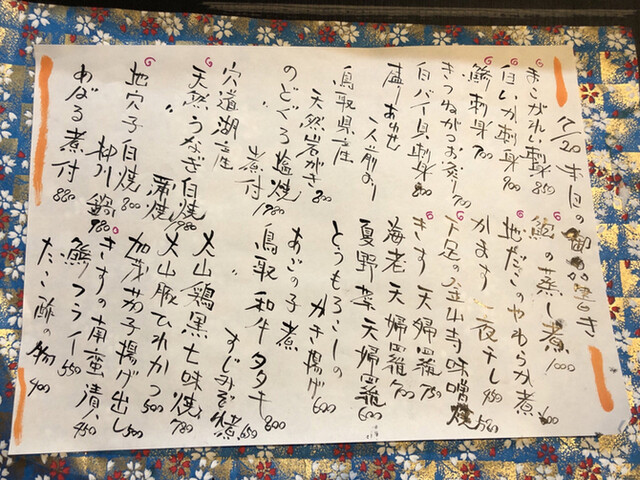 7/20 本日の御品書き
まこがれい刺身 850
白いか刺身 900
鯵刺身 700
きつねがつお炙り 700
白バイ貝刺身 800
盛りあわせ 一人前より
鳥取県産
天然岩がき 800
のどぐろ塩焼 1980
〃 煮付
宍道湖産
天然うなぎ白焼 1980
〃 蒲焼
地穴子白焼 800
〃 柳川鍋 980
あばる煮付 880
鮑の蒸し煮 1000
地だこのやわらか煮 600
かます一夜干し 450
下足の金山寺味噌焼 580
きす天婦羅 750
海老天婦羅 700
夏野菜天婦羅 600
とうもろこしの
かき揚げ 600
あごの子煮
鳥取和牛タタキ 800
〃 すじみぞ煮 650
大山鶏黒七味焼 780
大山豚ひれかつ 500
加茂茄子揚げ出し 500
きすの南蛮漬 450
鯵フライ 550
たこ酢の物 400